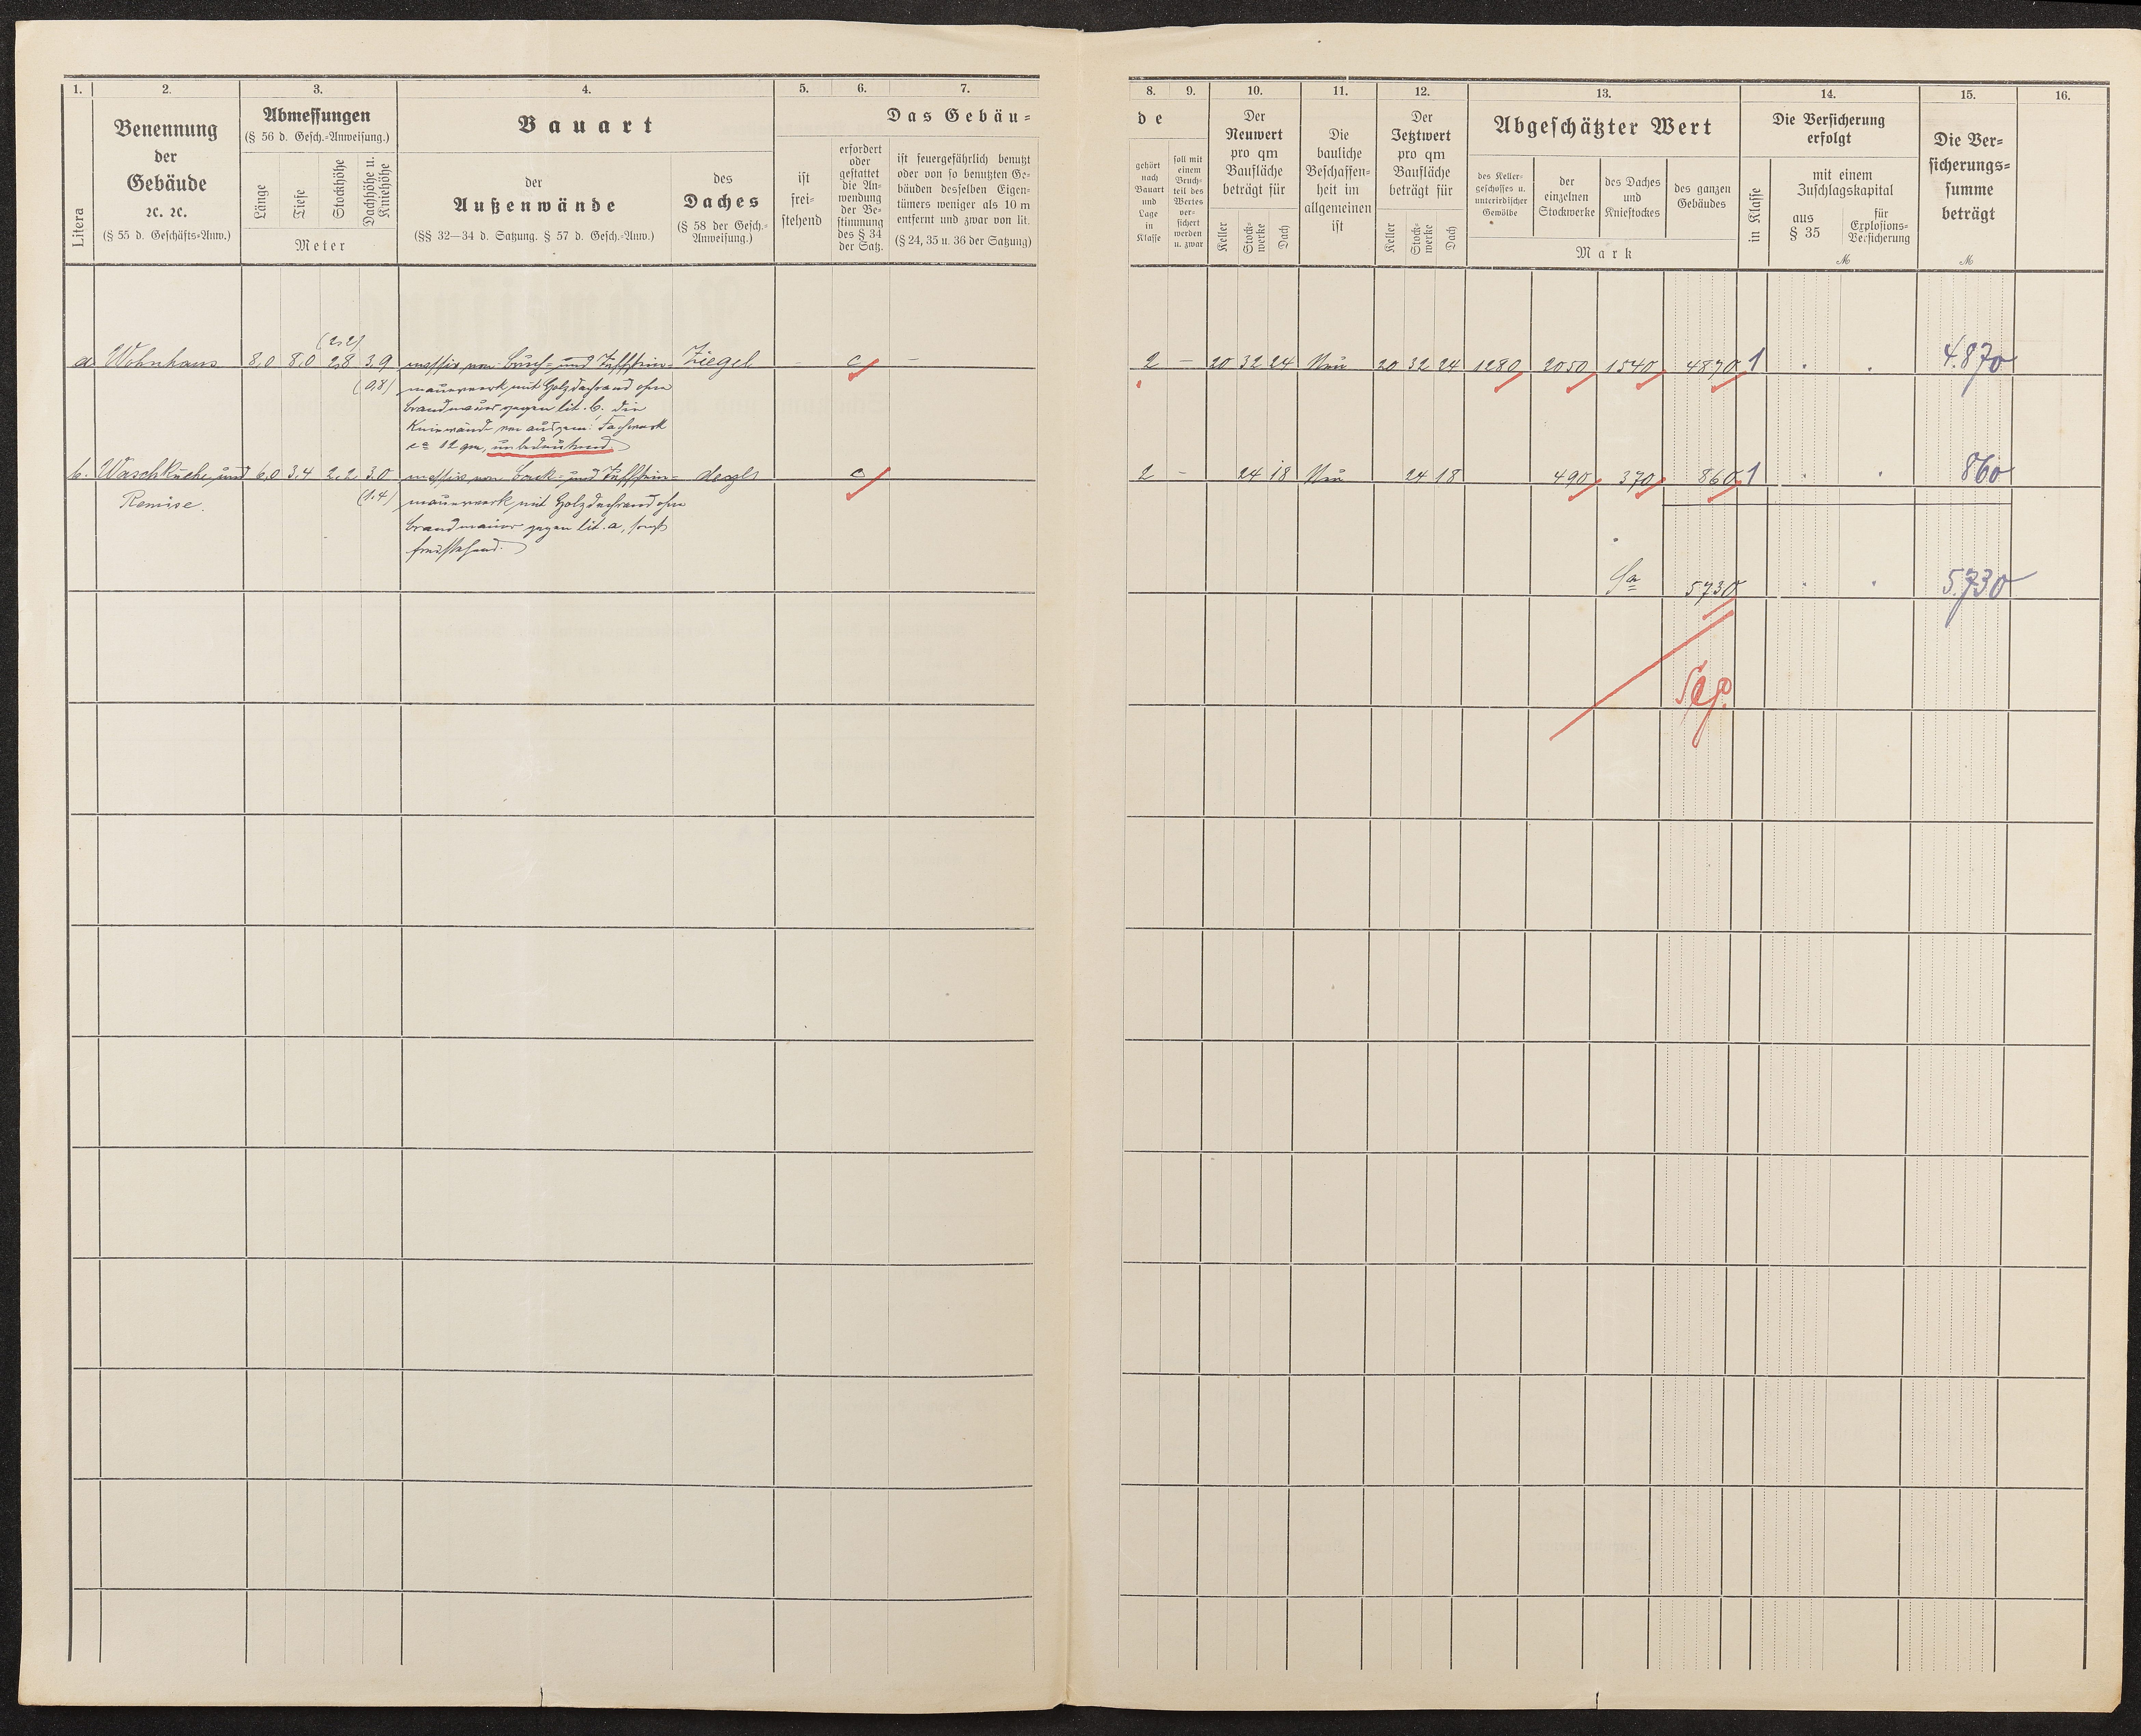 1. 2. 3. 4. 5. 6. 7.
Litera
Benennung
der
Gebäude
ꝛc. ꝛc.
(§ 55 d. Geschäfts-Anw.)
Abmessungen
(§ 56 d. Gesch.-Anweisung.)
Länge
Tiefe
Stockhöhe
Dachhöhe u.
Kniehöhe
Meter
Bauart
der
Außenwände
(§§ 32—34 d. Satzung. § 57 d. Gesch.-Anw.)
des
Daches
(§ 58 der Gesch.-
Anweisung.)
Das Gebäu-
ist
frei-
stehend
erfordert
oder
gestattet
die An-
wendung
der Be-
stimmung
des § 34
der Satz.
ist feuergefährlich benutzt
oder von so benutzten Ge-
bäuden desselben Eigen-
tümers weniger als 10 m
entfernt und zwar von lit.
(§ 24, 35 u. 36 der Satzung)
(2,2)
a. Wohnhaus 8,0 8,0 2,8 3,9 massiv von Bruch- und Tuffstein- Ziegel - c -
(0,8) mauerwerk mit Holzdachrand ohne
Brandmauer gegen lit. b. die
Kniewände von ausgem. Fachwerk
ca 12 qm, unbedeutend
b. Waschküche und 6,0 3,4 2,2 3,0 massiv von Back- und Tuffstein- desgl. c
Remise. (1,4) mauerwerk mit Holzdachrand ohne
Brandmauer gegen lit. a, sonst
freistehend.
8. 9. 10. 11. 12. 13. 14. 15. 16.
de
gehört
nach
Bauart
und
Lage
in
Klasse
soll mit
einem
Bruch-
teil des
Wertes
ver-
sichert
werden
u. zwar
Der
Neuwert
pro qm
Baufläche
beträgt für
Keller
Stock-
werke
Dach
Die
bauliche
Beschaffen-
heit im
allgemeinen
ist
Der
Jetztwert
pro qm
Baufläche
beträgt für
Keller
Stock-
werke
Dach
Abgeschätzter Wert
des Keller-
geschosses u.
unterirdischer
Gewölbe
der
einzelnen
Stockwerke
des Daches
und
Kniestockes
des ganzen
Gebäudes
Mark
Die Versicherung
erfolgt
in Klasse
mit einem
Zuschlagskapital
aus
§ 35
für
Explosions-
Versicherung
ℳ
Die Ver-
sicherungs-
summe
beträgt
ℳ
2 - 20 32 24 Neu 20 32 24 1280 2050 1540 4870 1 . . 4.870
2 - 24 18 Neu 24 18 490 370 860 1 . . 860
Sa 5730 . . 5.730